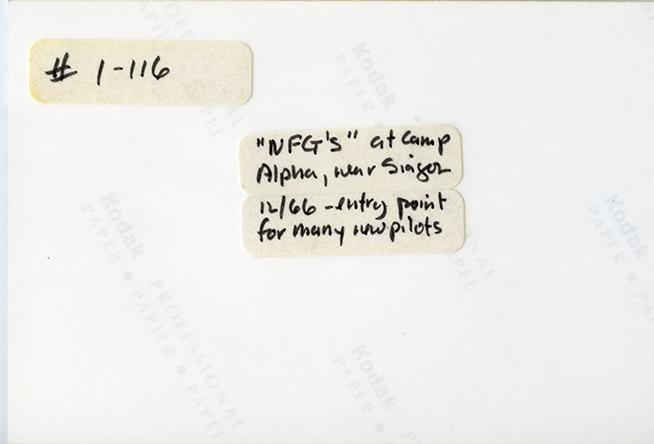 # 1-116
"NFG's" at Camp
Alpha, near Siagon
12/66 - entry point
for many new pilots
Kodak
PAPER
Kodak
PAPER • PAPIER
PROFESSIONAL
PAPEL
Kodak
PAPER
Kodak
PAPER • PAPIER